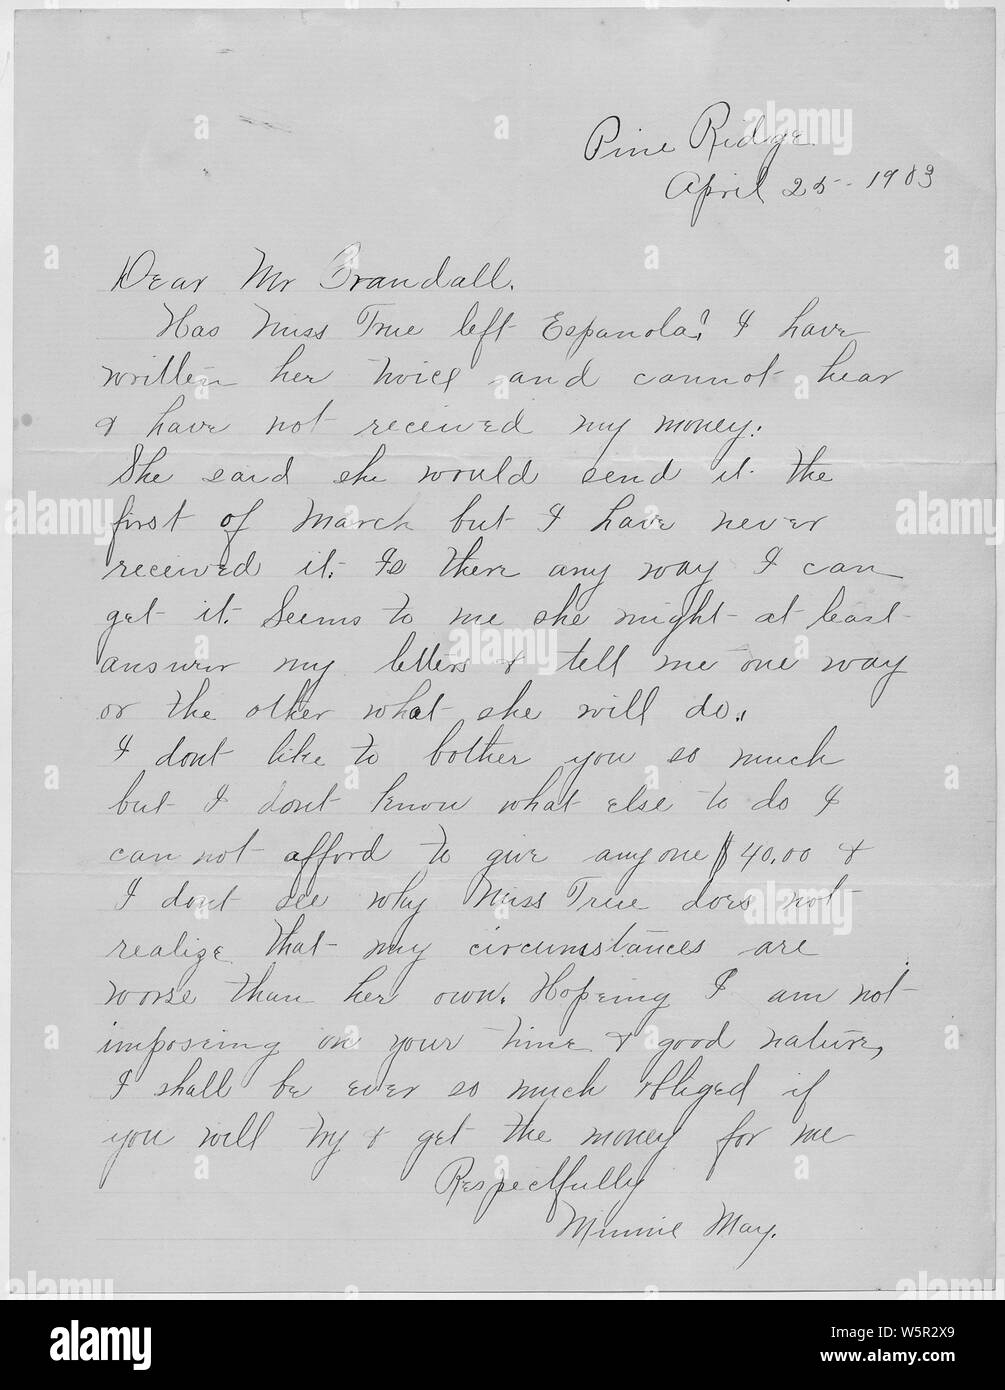 Pine Ridge.
April 25- 1903
Dear Mr Crandall.
Has Miss True left Espanola? I have
written her twice and cannot hear
& have not received my money.
She said she would send it the
first of March but I have never
received it. Is there any way I can
get it. Seems to me she might at least
answer my letters & tell me one way
or the other what she will do.
I dont like to bother you so much
but I dont know what else to do & I
can not afford to give any one $40.00 &
I dont see why Miss True does not
realize that my circumstances are
worse than her own. Hopeing I am not
imposeing on your time & good nature,
I shall be ever so much obliged if
you will try & get the money for me
Respectfully
Minnie May.
alamy
Image ID: W5R2X9
www.alamy.com